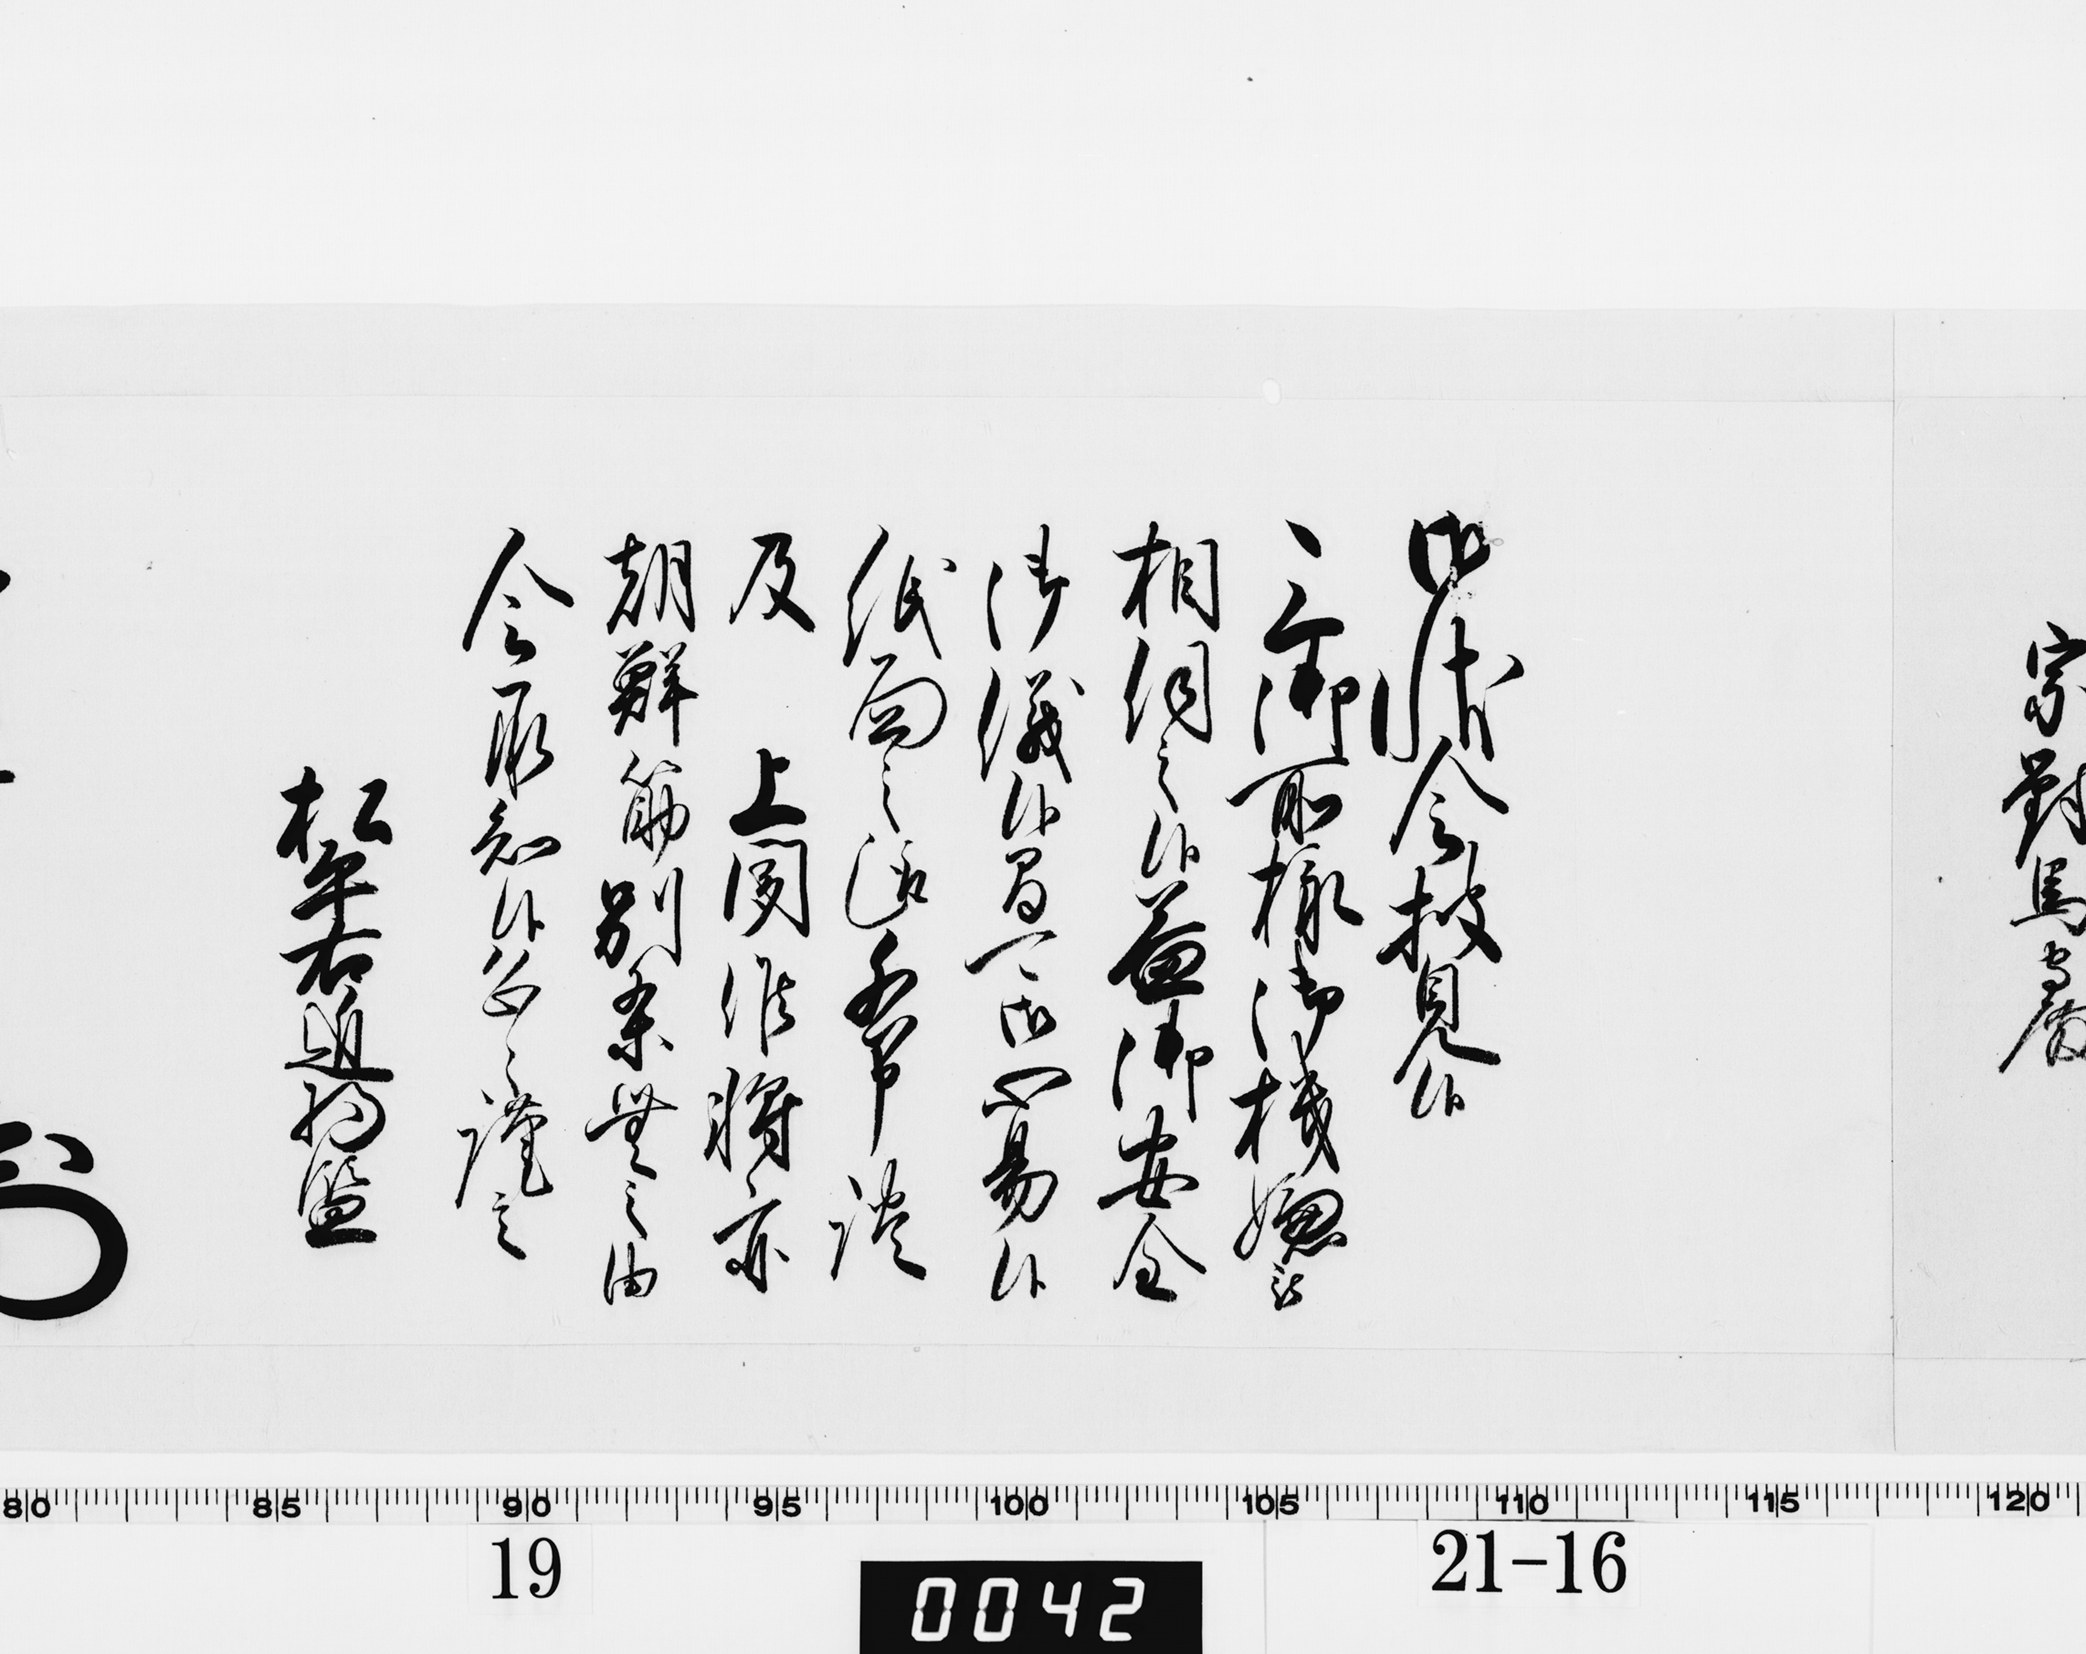 宗對馬守殿
御状令披見候
御所様御機嫌被
相伺之候益御安全
御儀候間可御心易候
紙面之趣各申談
及 上聞候将亦
朝鮮筋別条無之由
令承知候恐々謹言
松平右近将監
80 85 90 95 100 105 110 115 120
19 0042 21-16